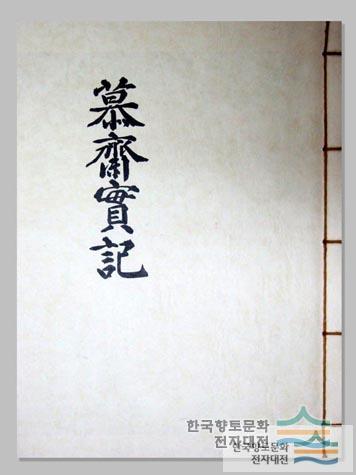 慕齋實記
한국향토문화
전자대전
한국향토문화
전자대전